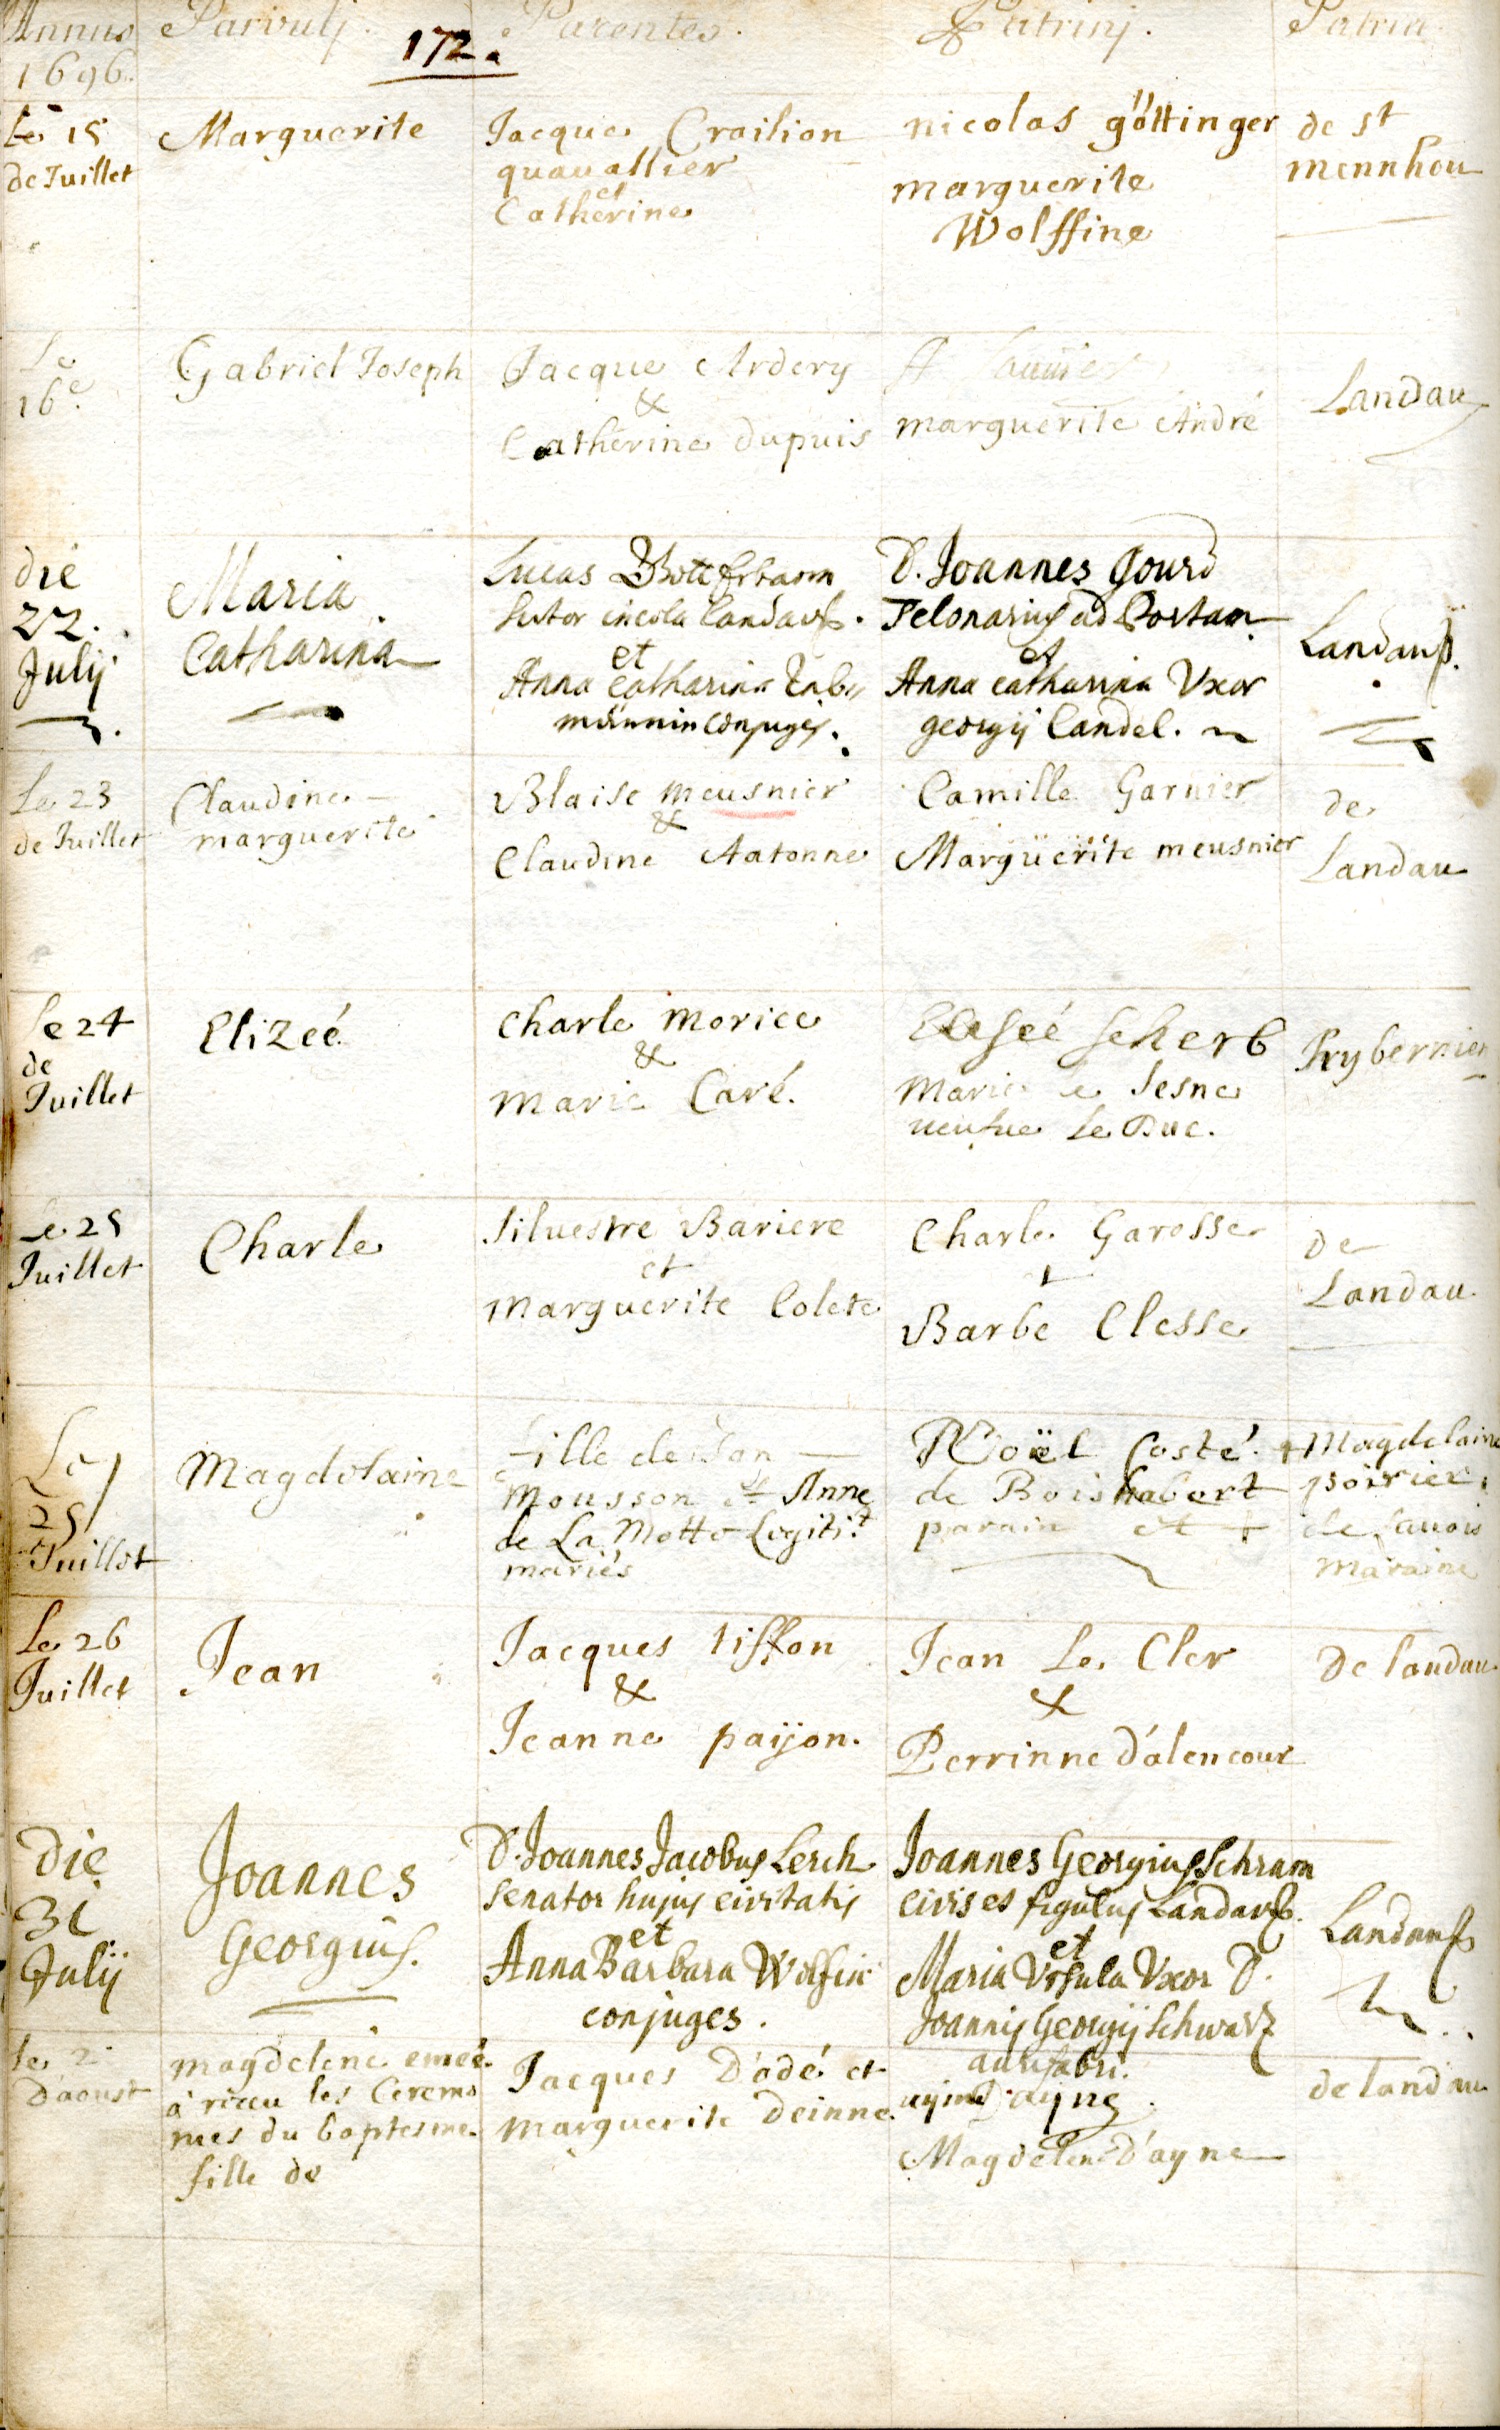 172.
Annus Parvulj. Parentes. Patrinj. Patria
1696.
Le 15 Marguerite Jacque Crailion nicolas göttinger de st
de Juillet quauallier marguerite mennhou
et Wolffine
Catherine
Le Gabriel Joseph Jacque Ardery
16e. & marguerite André Landau
Catherine dupuis
die Maria Lucas D. Joannes Gourd Landaus.
22. Catharina Sutor incola Landaus. Telonarius ad Portam
July et et
Anna Catharina Anna catharina Vxor
männin Conjuges. georgij Landel.
Le 23 Claudine Blaise meusnier Camille Garnier de
de Juillet marguerite & Margüerite meusnier Landau
Claudine Aatonne
Le 24 Elizeé Charle Morice Eleseé Scherb
de & Marie le Sesne
Juillet Marie Caré. ueufue Le Duc.
Le 25 Charle Siluestre Bariere Charle Garosse de
Juillet et Barbe Clesse Landau
Marguerite Colete
Le Magdelaine fille de Jan Noël Costé. + Magdelaine
25 Mousson et Anne de Boishabert poirier,
Juillet de La Motte Legitit parain et + de sauois
mariés Maraine
Le 26 Jean Jacques tiffon Jean Le Cler De landau
Juillet & &
Jeanne païjon. Perrinne d'alencour
Die Joannes D. Joannes Jacobus Lerch Joannes Georgius Schram Landaus
31 Georgius. Senator hujus civitatis civis et figulus Landaus.
Julij et et
Anna Barbara Wolfin Maria Vrsula Vxor D.
conjuges. Joannis Georgij Schwarz
aurifabri.
Le 2 magdelene emeé Jacques D'adé et de landau
D'aoust a receu les Ceremo marguerite Deinne. Magdelene D'ayne
nies du baptesme.
fille de